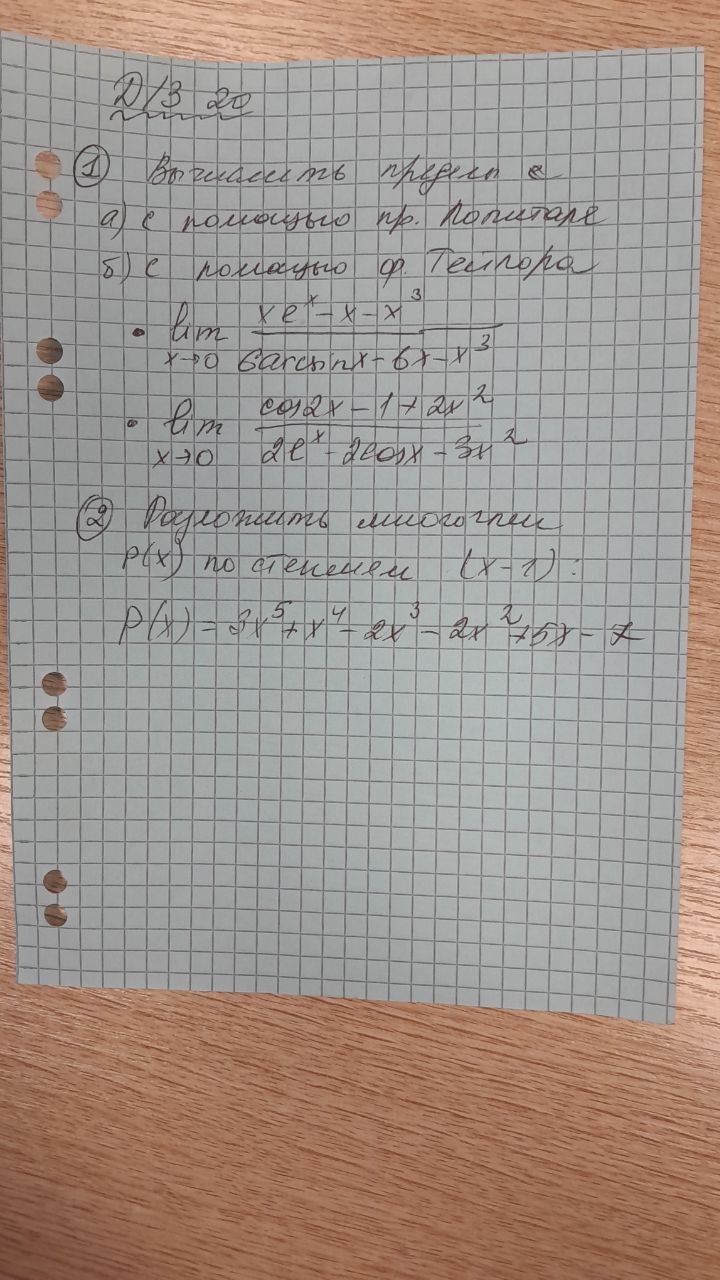 Д/З 20
① Вычислить пределы с
а) с помощью пр. Лопиталя
б) с помощью ф. Тейлора
• lim x→0 (xe^x - x - x^3) / (6arcsin x - 6x - x^3)
• lim x→0 (cos2x - 1 + 2x^2) / (2e^x - 2cosx - 3x^2)
② Разложить многочлен
P(x) по степеням (x-1):
P(x) = 3x^5 + x^4 - 2x^3 - 2x^2 + 5x - 7